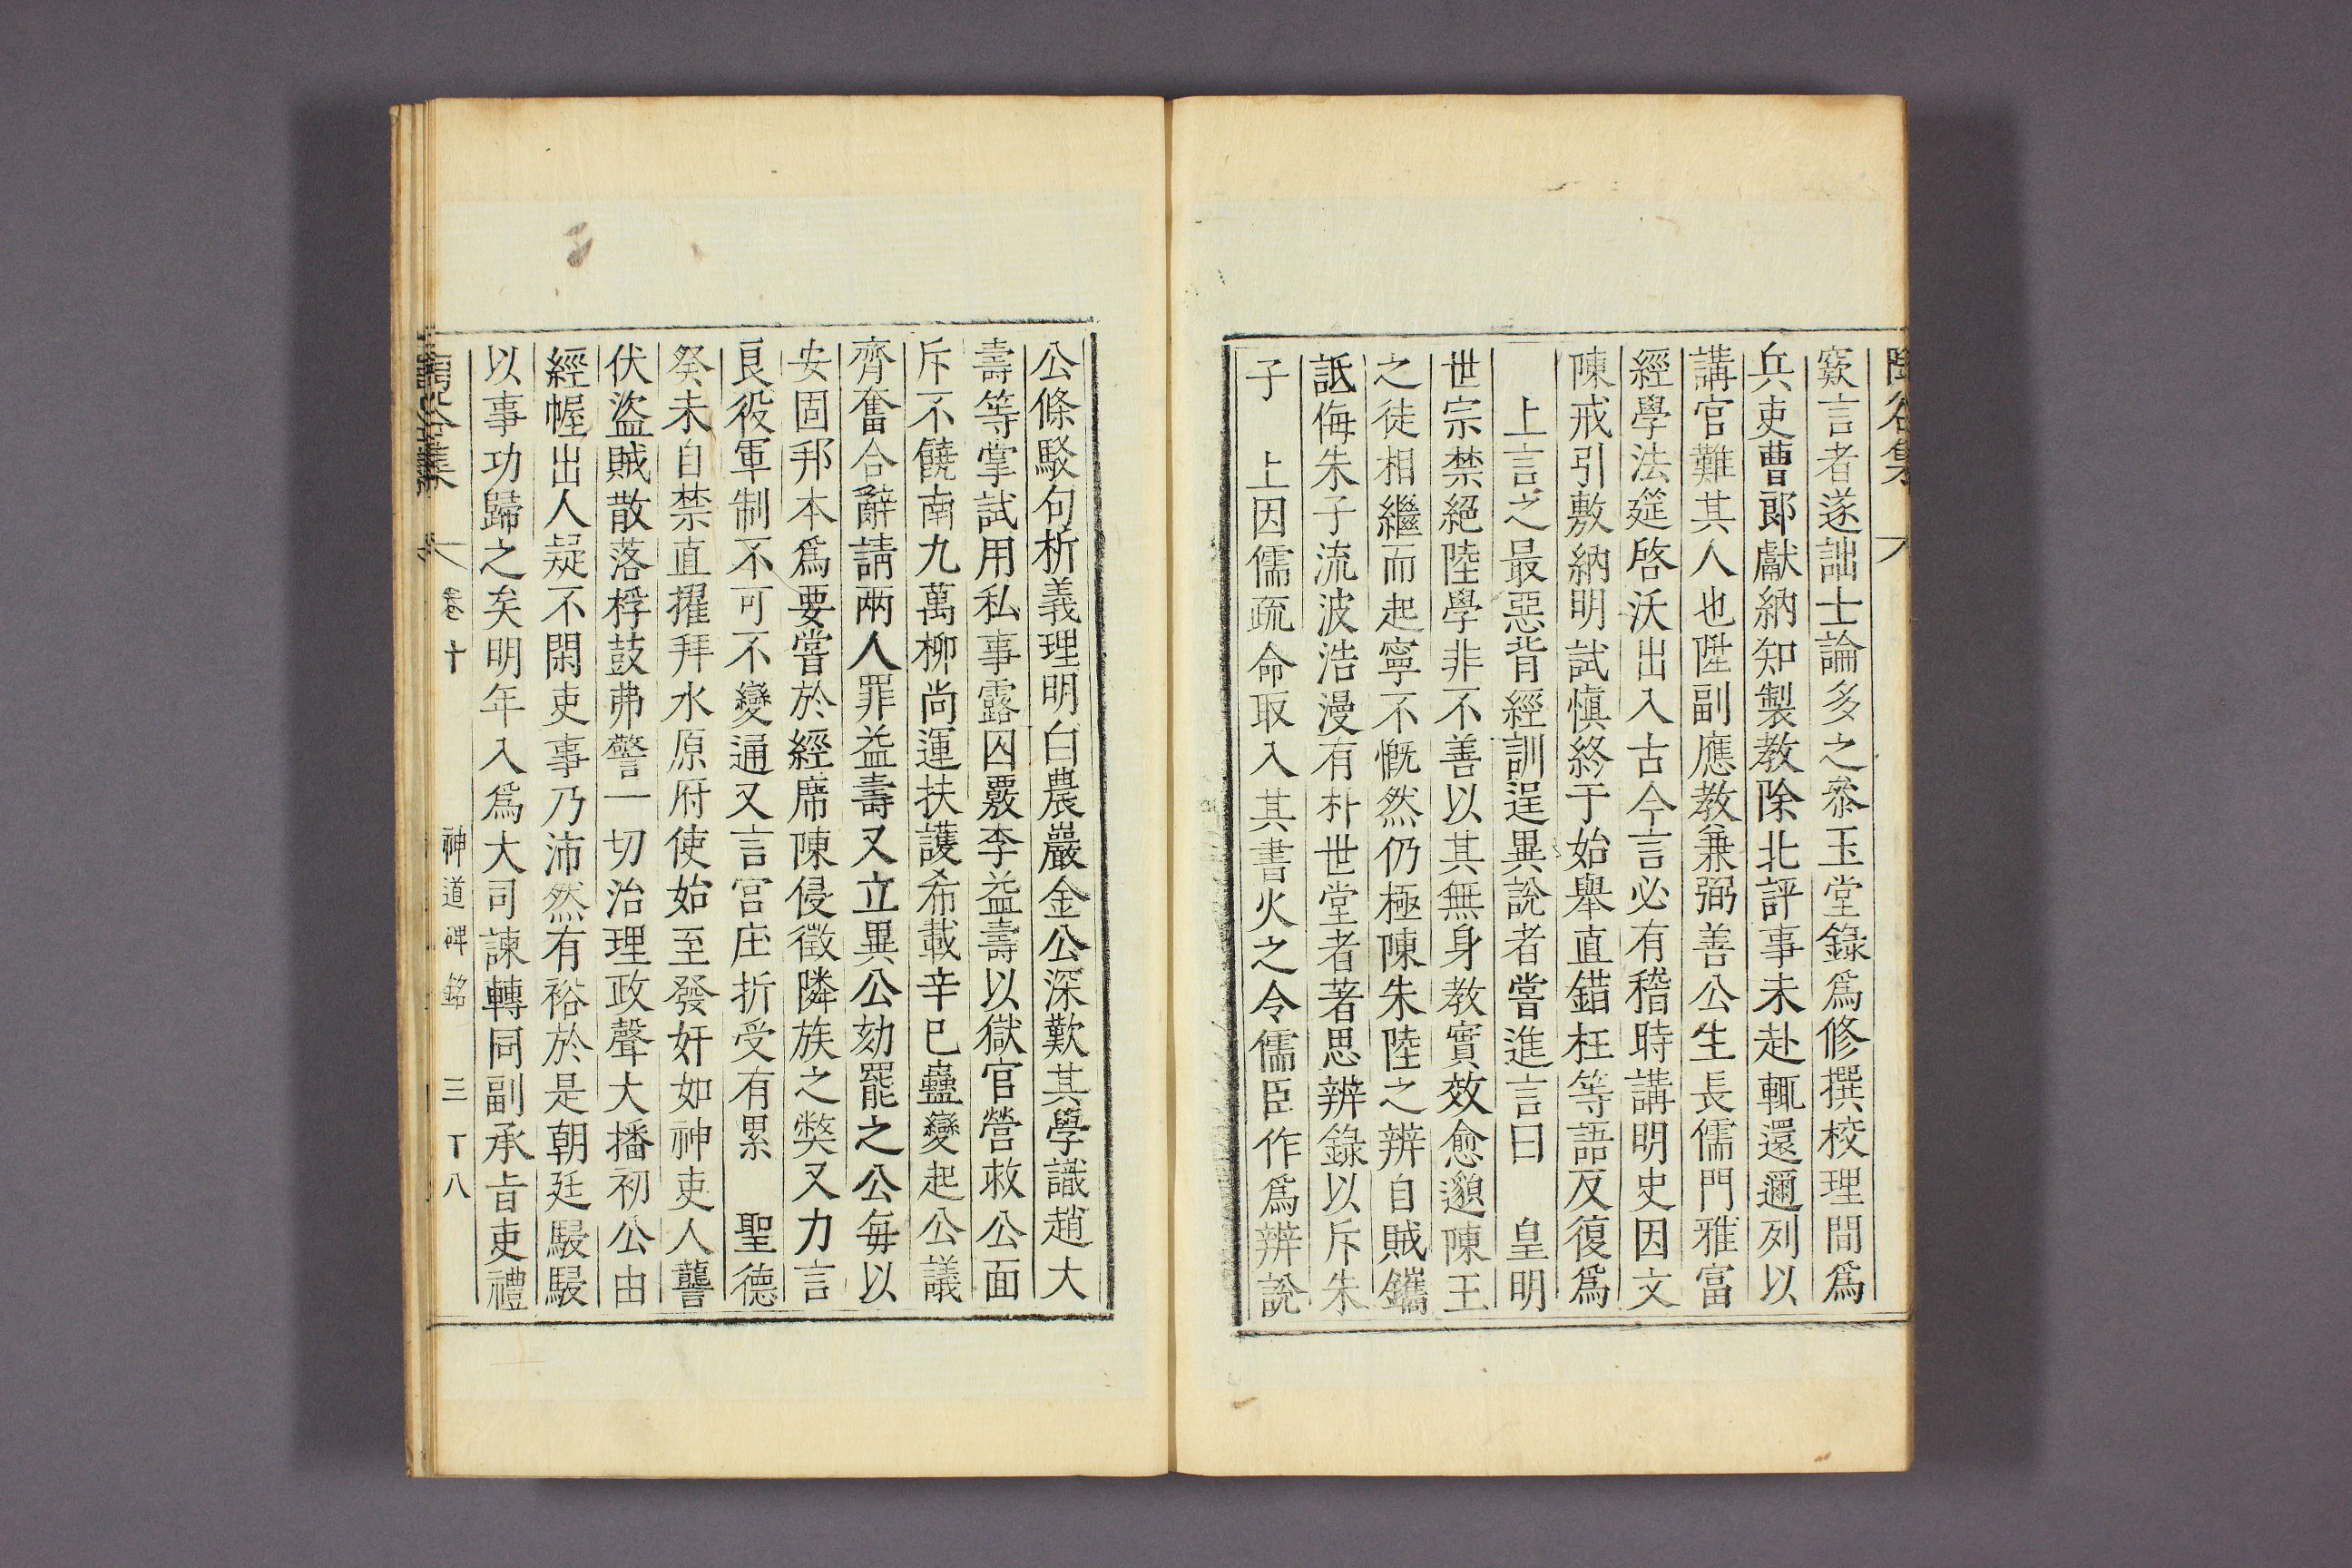 陶谷集
窾言者遂詘士論多之叅玉堂錄爲修撰校理間爲
兵吏曹郞獻納知製教除北評事未赴輒還邇列以
講官難其人也陞副應教兼弼善公生長儒門雅富
經學法筵啓沃出入古今言必有稽時講明史因文
陳戒引敷納明試愼終于始舉直錯枉等語反復爲
上言之最惡背經訓逞異說者嘗進言曰 皇明
世宗禁絕陸學非不善以其無身教實效愈邈陳王
之徒相繼而起寧不慨然仍極陳朱陸之辨自賊鑴
詆侮朱子流波浩漫有朴世堂者著思辨錄以斥朱
子 上因儒疏命取入其書火之令儒臣作爲辨說
公條駁句析義理明白農巖金公深歎其學識趙大
壽等掌試用私事露囚覈李益壽以獄官營救公面
斥不饒南九萬柳尙運扶護希載辛巳蠱變起公議
齊奮合辭請兩人罪益壽又立異公劾罷之公每以
安固邦本爲要嘗於經席陳侵徵隣族之獘又力言
良役軍制不可不變通又言宮庄折受有累 聖德
癸未自禁直擢拜水原府使始至發奸如神吏人讋
伏盜賊散落桴鼓弗警一切治理政聲大播初公由
經幄出人疑不閑吏事乃沛然有裕於是朝廷駸駸
以事功歸之矣明年入爲大司諫轉同副承旨吏禮
卷十 神道碑銘 三 丁八